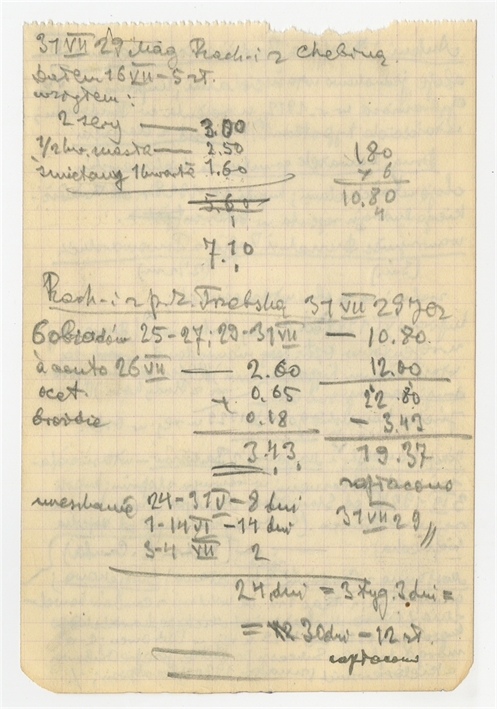 31 VII 29 Mag. Rach-i z Chebiną.
Dałem 16 VII – 5 zł.
wziąłem:
2 sery — 3.00
1/2 kw. masła — 2.50
śmietany 1 kwartę 1.60
5.60
7.10
180
76
10.80
4
Rach-i z p. Z. Trzebską 31 VII 29
6 obiadów 25-27; 29-31 VII — 10.80.
à conto 26 VII — 2.60 12.00
ocet + 0.65 22.80
0.18 – 3.43
3.43. 19.37
zapłacono
31 VII 29 〃
mieszkanie 24-31 V – 8 dni
1-14 VI – 14 dni
3-4 VII 2
24 dni = 3 tyg. 3 dni =
= 30 dni – 12 zł.
zapłacono